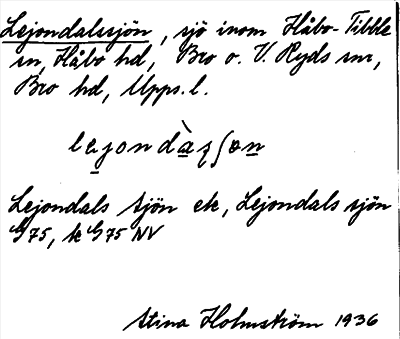 Lejondalssjön, sjö inom Håbo-Tibble
sn, Håbo hd, Bro o. V. Ryds snr,
Bro hd, Upps. l.
lejondàsʃøn
Lejondals sjön ek, Lejondals sjön
G75, k G75 NV
Stina Holmström 1936